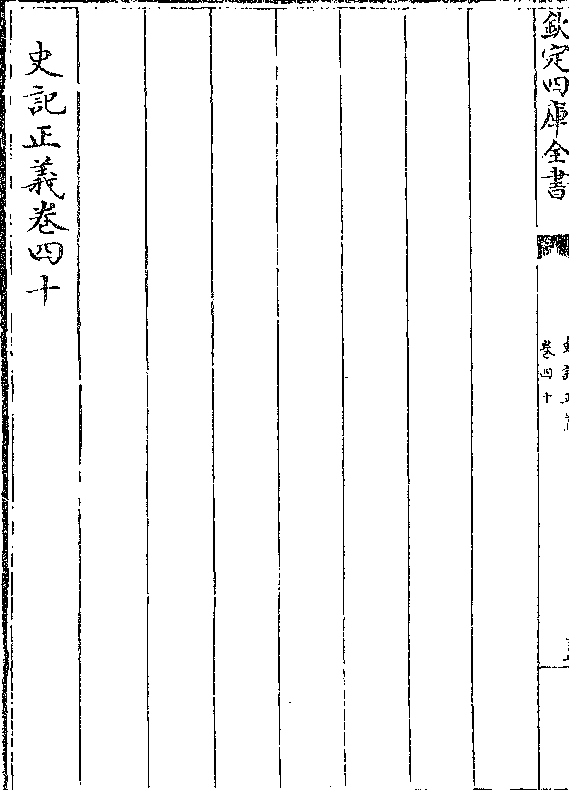 欽定四庫全書
史記正義
卷四十
史記正義卷四十